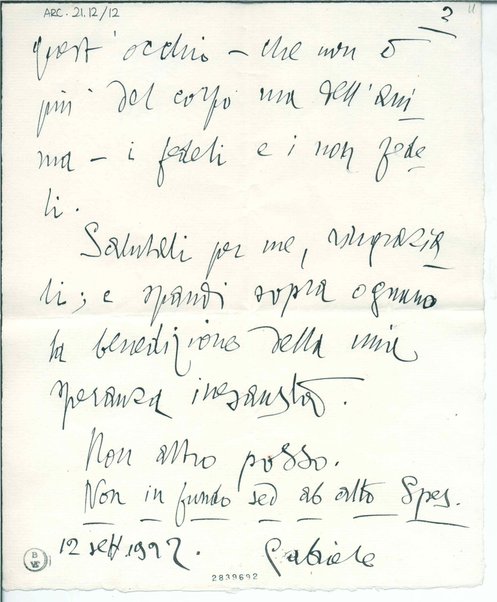 ARC. 21.12/12
2
quest'occhio – che non è
più del corpo ma dell'ani
ma – i fedeli e i non fede
li.
Salutali per me, ringrazia
li; e spandi sopra ognuno
la benedizione della mia
speranza inesausta.
Non altro posso.
Non in fundo sed ab alto Spes.
12 sett. 1922.
Gabriele
2839692